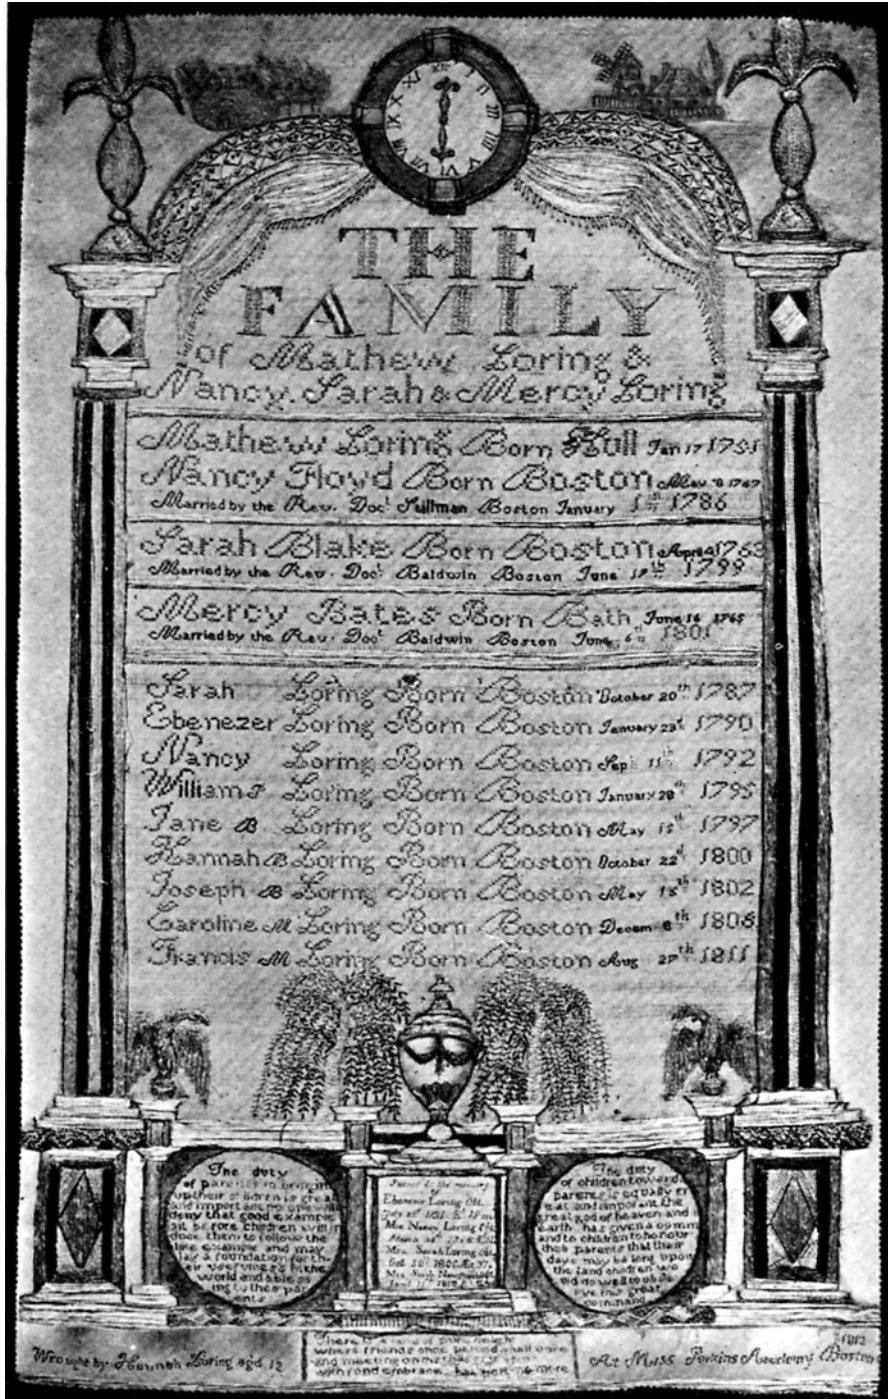 XII I II III IIII V VI VII VIII IX X XI
THE
FAMILY
of Mathew Loring &
Nancy, Sarah & Mercy Loring
Mathew Loring Born Hull Jan 17 1751
Nancy Floyd Born Boston May 8 1767
Married by the Rev. Doct. Stillman Boston January 1st 1786
Sarah Blake Born Boston April 4 1763
Married by the Rev. Doct. Baldwin Boston June 17th 1799
Mercy Bates Born Bath June 16 1765
Married by the Rev. Doct. Baldwin Boston June 6th 1801
Sarah Loring Born Boston October 20th 1787
Ebenezer Loring Born Boston January 23d 1790
Nancy Loring Born Boston Sep 11th 1792
William Loring Born Boston January 28th 1795
Jane B Loring Born Boston May 15th 1797
Hannah B Loring Born Boston October 22d 1800
Joseph B Loring Born Boston May 15th 1802
Caroline M Loring Born Boston Decem 6th 1806
Francis M Loring Born Boston Aug 27th 1811
The duty
of parents in bringing
up their children is great
and important no one will
deny that good example
set before children will in
duce them to follow the
like example and may
lay a foundation for th-
eir usefulness in the
world and a blessing
to their par
ents
Sacred to the memory
of
Ebenezer Loring Obt.
Mrs Nancy Loring Obt.
Mrs. Sarah Loring obt.
Oct 1800 37
Mrs Sarah
The duty
of children towards
parents is equally gr
eat and important the
great god of heaven and
earth has given a comm
and to children to honour
their parents that their
days may be long upon
the land children wo
uld do well to obse
rve this great
command
There is a land of pure delight
where friends once parted shall
and meeting on
with fond embrace no more
Wrought by Hannah Loring aged 12
At Miss Perkins Academy Boston
1812